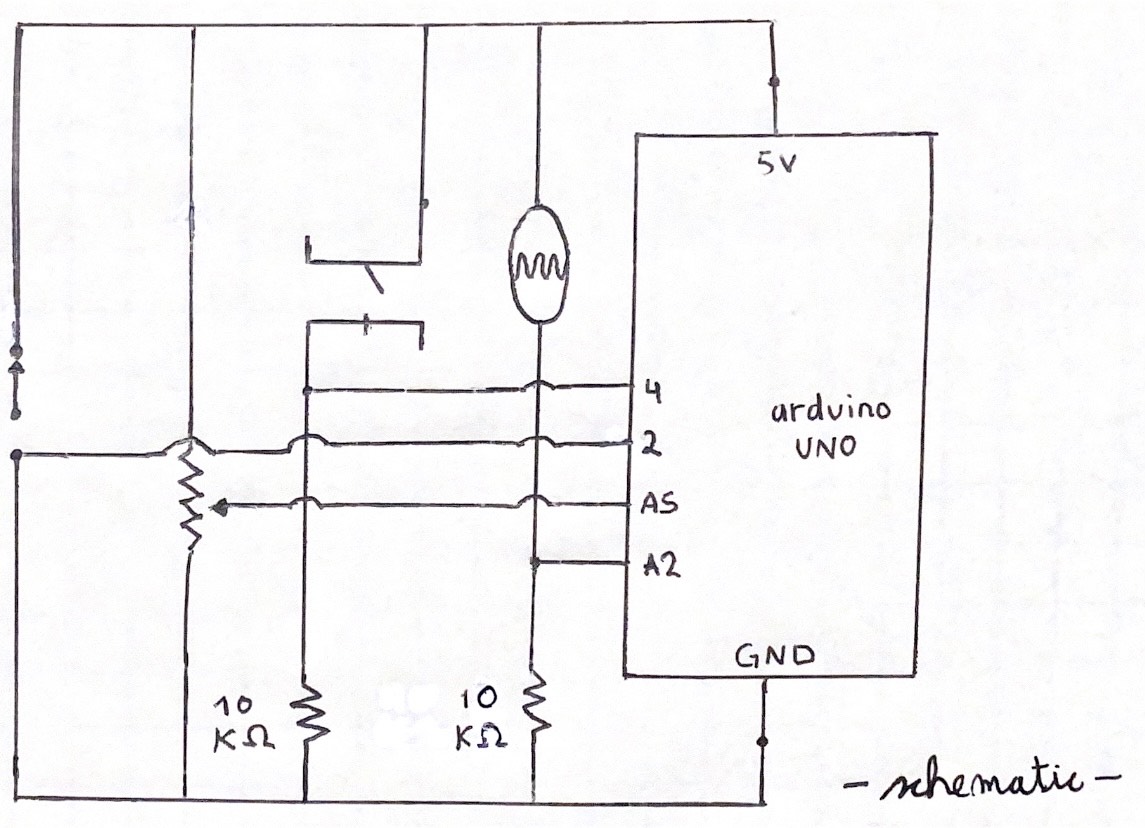 5V
4
2
A5
A2
arduino
UNO
GND
10
KΩ
10
KΩ
- schematic -